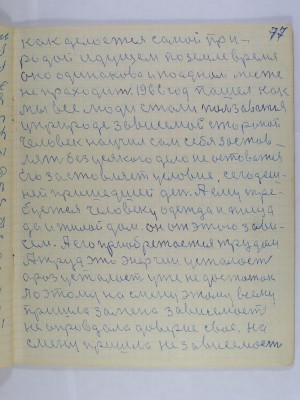 77
как делается самой при-
родой идущем по земле время
оно одинаково и поодном месте
не проходит. 1968 год пошел как
мы все люди стали
у природе зависимой стороной
человек научил сам себя застав-
лять без всякого дела не оставатся
его заставляет условие, сегодеш-
ней пришедшей ден. А ему тре-
буется человеку одежда и пища
да и жилой дом. он от этого зави-
сем. А его приобретается трудом
А труд это энергии усталость
а раз усталост уже недостаток
поэтому на смену этому всему
пришла замена зависемост
не оправдала доверие свое. На
смену пришла не зависемост